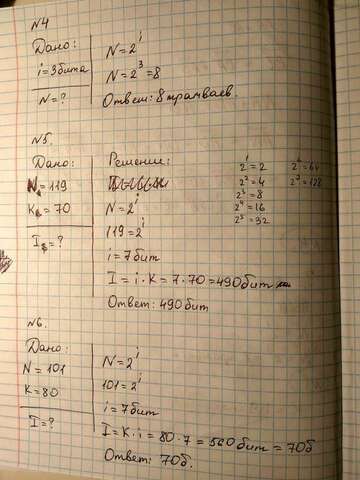 №4
Дано:
i = 3бита
N = ?
N = 2^i
N = 2^3 = 8
Ответ: 8 трамваев.
№5.
Дано:
N = 119
K = 70
I = ?
Решение:
N = 2^i
119 = 2^i
i = 7бит
I = i · K = 7 · 70 = 490бит
Ответ: 490 бит
2^1 = 2
2^2 = 4
2^3 = 8
2^4 = 16
2^5 = 32
2^6 = 64
2^7 = 128
№6.
Дано:
N = 101
K = 80
I = ?
N = 2^i
101 = 2^i
i = 7бит
I = K · i = 80 · 7 = 560 бит = 70б
Ответ: 70б.